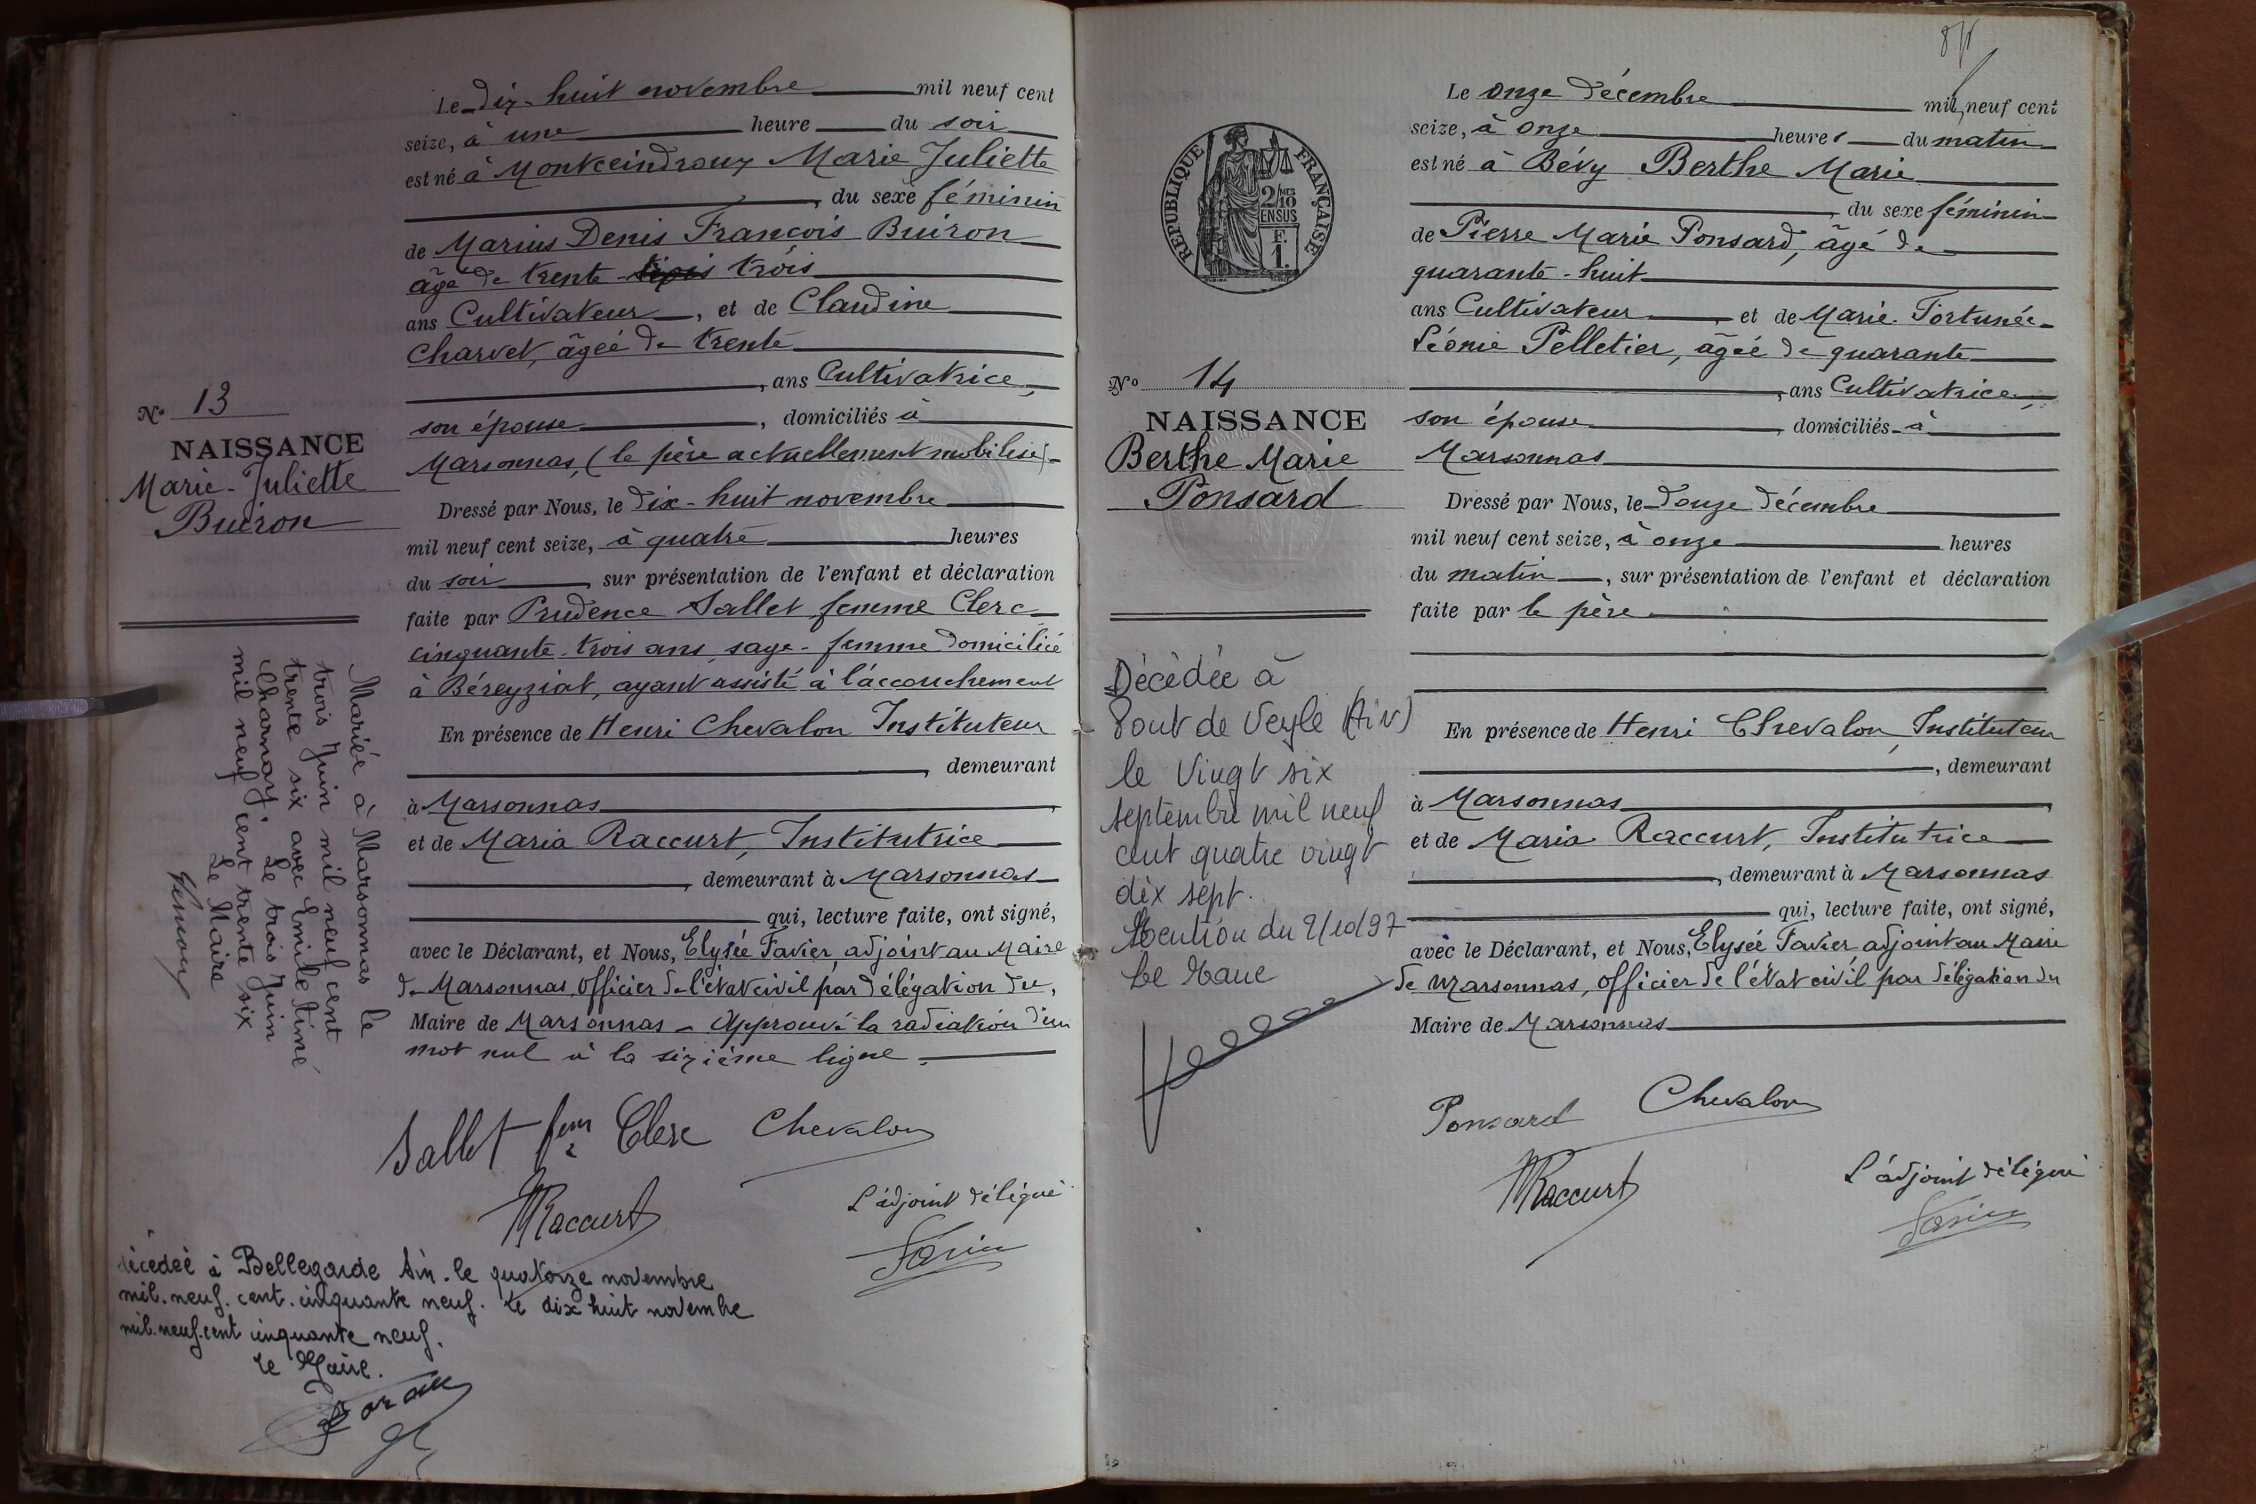 Le dix-huit novembre mil neuf cent
seize, à une heure du soir
est né à Montceindroux Marie Juliette
, du sexe féminin
de Marius Denis François Buiron
âgé de trente trois
ans Cultivateur, et de Claudine
Charvet, âgée de trente
, ans Cultivatrice,
son épouse, domiciliés à
Marsonnas, (le père actuellement mobilisé)
Dressé par Nous, le dix-huit novembre
mil neuf cent seize, à quatre heures
du soir, sur présentation de l'enfant et déclaration
faite par Prudence Sallet femme Clerc
cinquante-trois ans, sage-femme domiciliée
à Béreyziat, ayant assisté à l'accouchement
En présence de Henri Chevalon Instituteur
, demeurant
à Marsonnas,
et de Maria Raccurt, Institutrice
, demeurant à Marsonnas
qui, lecture faite, ont signé,
avec le Déclarant, et Nous, Elysée Favier, adjoint au Maire
de Marsonnas, officier de l'état civil par délégation du,
Maire de Marsonnas - Approuvé la radiation d'un
mot nul à la sixième ligne.
Sallet fem Clerc Chevalon
MRaccurt
L'adjoint délégué
Favier
N° 13
NAISSANCE
Marie-Juliette
Buiron
Mariée à Marsonnas le
trois Juin mil neuf cent
trente six avec Emile Aimé
Charnay. Le trois Juin
mil neuf cent trente six
Le Maire
décédée à Bellegarde Ain. le quatorze novembre
mil. neuf. cent. cinquante neuf. le dix huit novembre
mil. neuf. cent cinquante neuf.
le Maire.
Le onze décembre mil neuf cent
seize, à onze heures du matin
est né à Bévy Berthe Marie
, du sexe féminin
de Pierre Marie Ponsard, âgé de
quarante-huit
ans Cultivateur, et de Marie-Fortunée
Léonie Pelletier, âgée de quarante
, ans Cultivatrice,
son épouse, domiciliés à
Marsonnas
Dressé par Nous, le douze décembre
mil neuf cent seize, à onze heures
du matin, sur présentation de l'enfant et déclaration
faite par le père
En présence de Henri Chevalon, Instituteur
, demeurant
à Marsonnas,
et de Maria Raccurt, Institutrice
, demeurant à Marsonnas
qui, lecture faite, ont signé,
avec le Déclarant, et Nous, Elysée Favier adjoint au Maire
de Marsonnas, officier de l'état civil par délégation du
Maire de Marsonnas
Ponsard Chevalon
MRaccurt
L'adjoint délégué
Favier
RÉPUBLIQUE FRANÇAISE
2/10 EN SUS
F.
1.
N° 14
NAISSANCE
Berthe Marie
Ponsard
Décédée à
Pont de Veyle (Ain)
le vingt six
septembre mil neuf
cent quatre vingt
dix sept.
Mention du 2/10/97
Le Maire